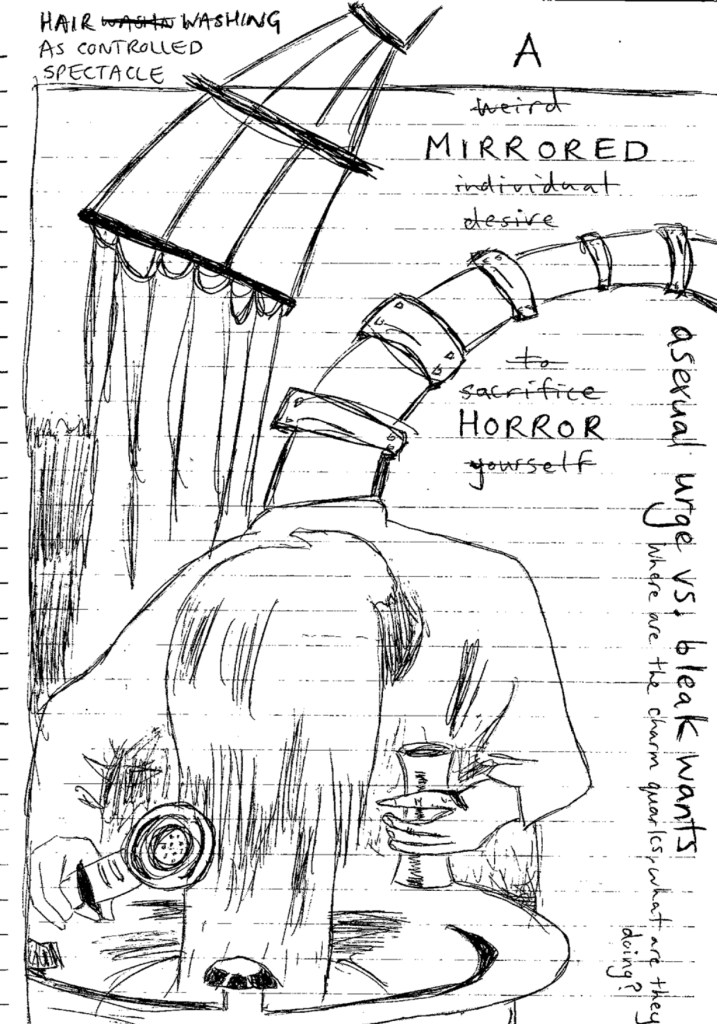 HAIR WASHN WASHING
AS CONTROLLED
SPECTACLE
A
weird
MIRRORED
individual
desire
to
sacrifice
HORROR
yourself
asexual urge vs. bleak wants
where are the charm quarks, what are they
doing?